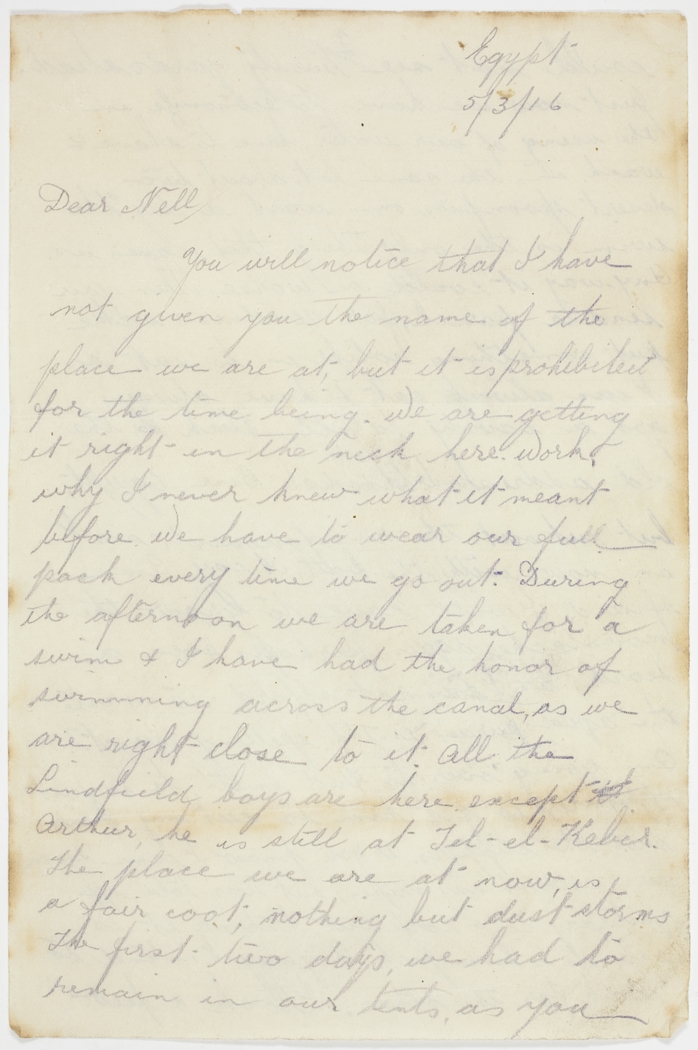 Egypt
5/3/16
Dear Nell,
You will notice that I have
not given you the name of the
place we are at, but it is prohibited
for the time being. We are getting
it right in the neck here. Work,
why I never knew what it meant
before. We have to wear our full
pack every time we go out. During
the afternoon we are taken for a
swim & I have had the honor of
swimming across the canal, as we
are right close to it. All, the
Lindfield boys are here except
Arthur, he is still at Tel-el-Kebir.
The place we are at now, is
a fair coot, nothing but dust storms
The first two days, we had to
remain in our tents, as you